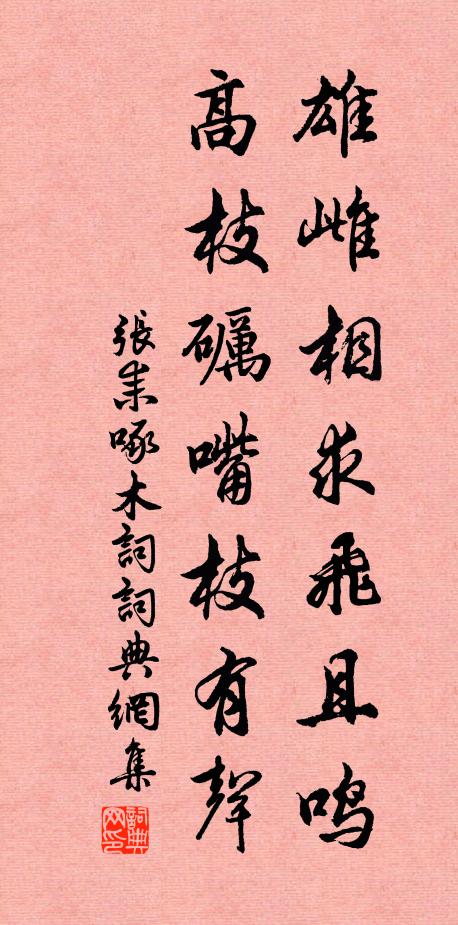 雄雌相求飛且鸣
高枝礪嘴枝有聲
張耒啄木詞詞典網集
詞典網印